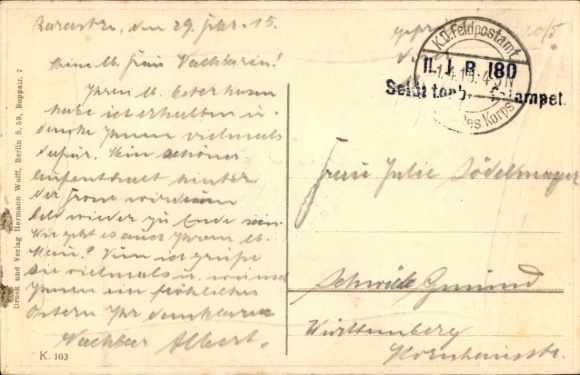 den 29. 15.
Meine lb. Frau Nachbarin!
Ihren lb. Osterhasen
habe ich erhalten u.
danke Ihnen vielmals
dafür. Mein schöner
Aufenthalt hinter
der Front wird
bald wieder zu Ende sein.
Wie geht es auch Ihrem lb.
Nun ich grüße
Sie vielmals u. wünsche
Ihnen ein fröhliches
Ostern Ihr dankbarer
Nachbar Albert.
K. 103
Druck und Verlag Hermann Wolff, Berlin S. 59, Boppstr. 7
K.D. Feldpostamt
II. J. R. 180
des Korps
Frau Julie Södelmayer
Schwäb. Gmünd
Württemberg